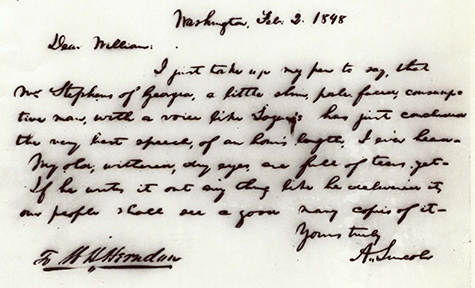 Washington, Feb. 2. 1848
Dear William:
I just take up my pen to say, that
Mr Stephens of Georgia, a little slim, pale-faced, consump-
tive man, with a voice like Logan's has just concluded
the very best speech, of an hour's length, I ever heard—
My old, withered, dry eyes, are full of tears yet—
If he writes it out any thing like he delivered it,
our people shall see a good many copies of it—
Yours truly
A. Lincoln
To W H Herndon